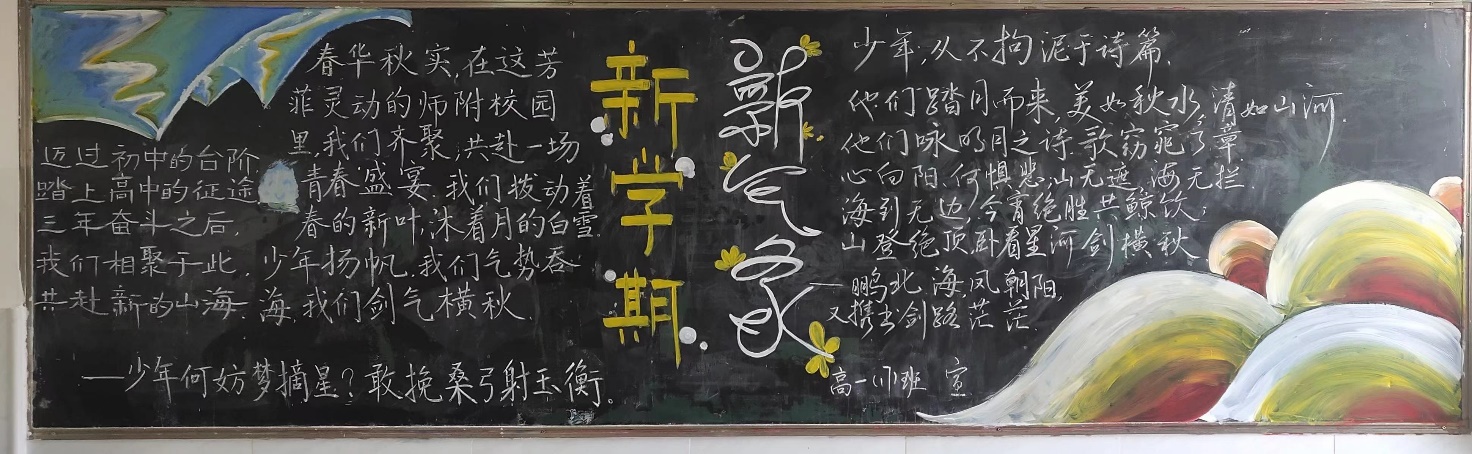 迈过初中的台阶
踏上高中的征途
三年奋斗之后,
我们相聚于此,
共赴新的山海.
春华秋实,在这芳
菲灵动的师附校园
里,我们齐聚,共赴一场
青春盛宴,我们拨动着
春的新叶,沐着月的白雪.
少年扬帆,我们气势吞
海,我们剑气横秋.
—少年何妨梦摘星?敢挽桑弓射玉衡。
新学期
新气象
少年,从不拘泥于诗篇.
他们踏月而来,美如秋水,清如山河.
他们咏明月之诗,歌窈窕之章
心向阳,何惧悲,山无遮,海无拦.
海到无边,今宵绝胜共鲸饮;
山登绝顶,卧看星河剑横秋.
鹏北海,凤朝阳.
又携书剑路茫茫.
高一(11)班 宣